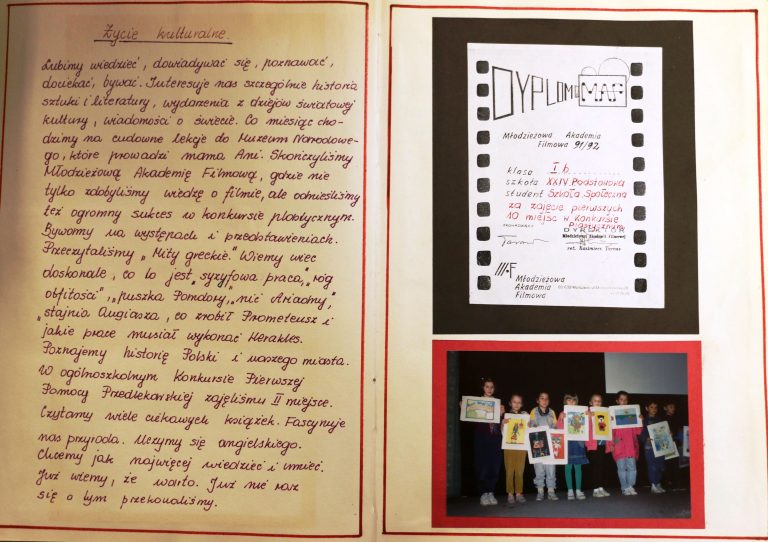 Życie kulturalne.
Lubimy wiedzieć, dowiadywać się, poznawać,
dociekać, bywać. Interesuje nas szczególnie historia
sztuki i literatury, wydarzenia z dziejów światowej
kultury, wiadomości o świecie. Co miesiąc cho-
dzimy na cudowne lekcje do Muzeum Narodowe-
go, które prowadzi mama Ani. Skończyliśmy
Młodzieżową Akademię Filmową, gdzie nie
tylko zdobyliśmy wiedzę o filmie, ale odnieśliśmy
też ogromny sukces w konkursie plastycznym.
Bywamy na występach i przedstawieniach.
Przeczytaliśmy „Mity greckie." Wiemy więc
doskonale, co to jest „syzyfowa praca", „róg
obfitości", „puszka Pandory", „nić Ariadny",
„stajnia Augiasza, co zrobił Prometeusz i
jakie prace musiał wykonać Herakles.
Poznajemy historię Polski i naszego miasta.
W ogólnoszkolnym Konkursie Pierwszej
Pomocy Przedlekarskiej zajęliśmy II miejsce.
Czytamy wiele ciekawych książek. Fascynuje
nas przyroda. Uczymy się angielskiego.
Chcemy jak najwięcej wiedzieć i umieć.
Już wiemy, że warto. Już nie raz
się o tym przekonaliśmy.
DYPLOM MAF
Młodzieżowa Akademia
Filmowa 91/92
klasa I b
szkoła XXIV Podstawowa
student Szkoła Społeczna
za zajęcie pierwszych
10 miejsc w konkursie
Plastycznym
DYREKTOR
Młodzieżowej Akademii Filmowej
Kazimierz Tarnas
MAF Młodzieżowa
Akademia
Filmowa